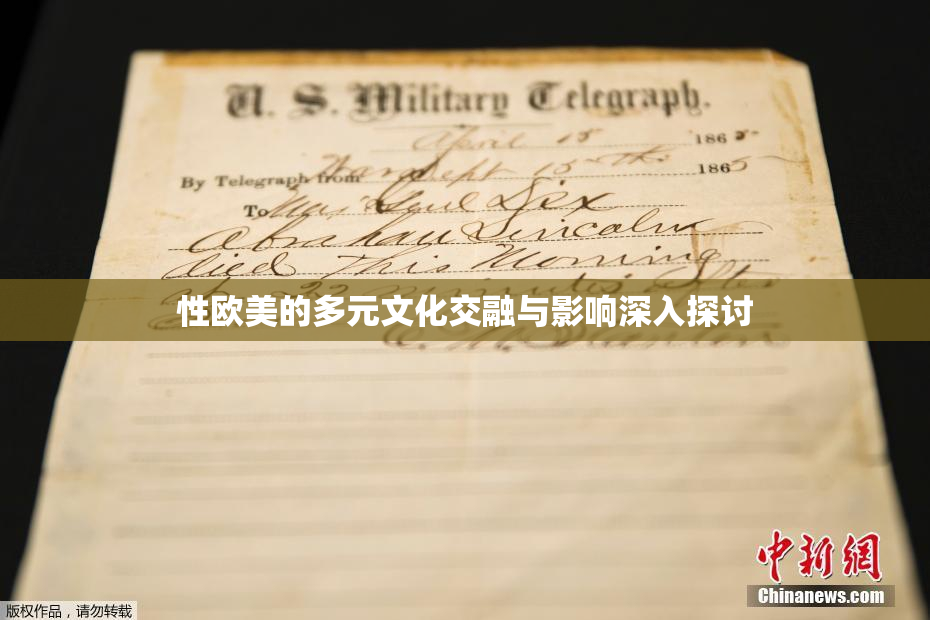 U. S. Military Telegraph.
April 15 1865
By Telegraph from War Dept 15th 1865
To Maj Genl Dix
Abraham Lincoln
died This Morning
at 22 minutes after
性欧美的多元文化交融与影响深入探讨
E. M. Stanton
中新網
Chinanews.com
版权作品，请勿转载